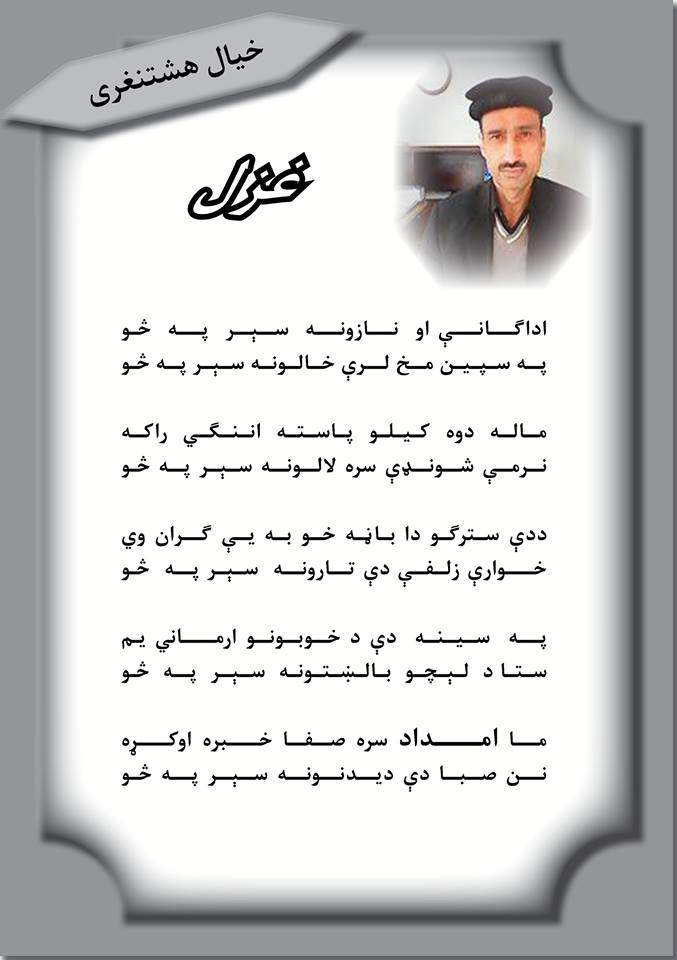 خیال هشتنغری
غزل
اداگانې او نازونه سېر په څو
په سپین مخ لرې خالونه سېر په څو
ماله دوه کیلو پاسته اننګي راکه
نرمې شونډې سره لالونه سېر په څو
ددې سترګو دا باڼه خو به یې ګران وي
خوارې زلفې دې تارونه سېر په څو
په سینه دې د خوبونو ارماني یم
ستا د لېچو بالښتونه سېر په څو
ما امداد سره صفا خبره اوکړه
نن صبا دې دیدنونه سېر په څو